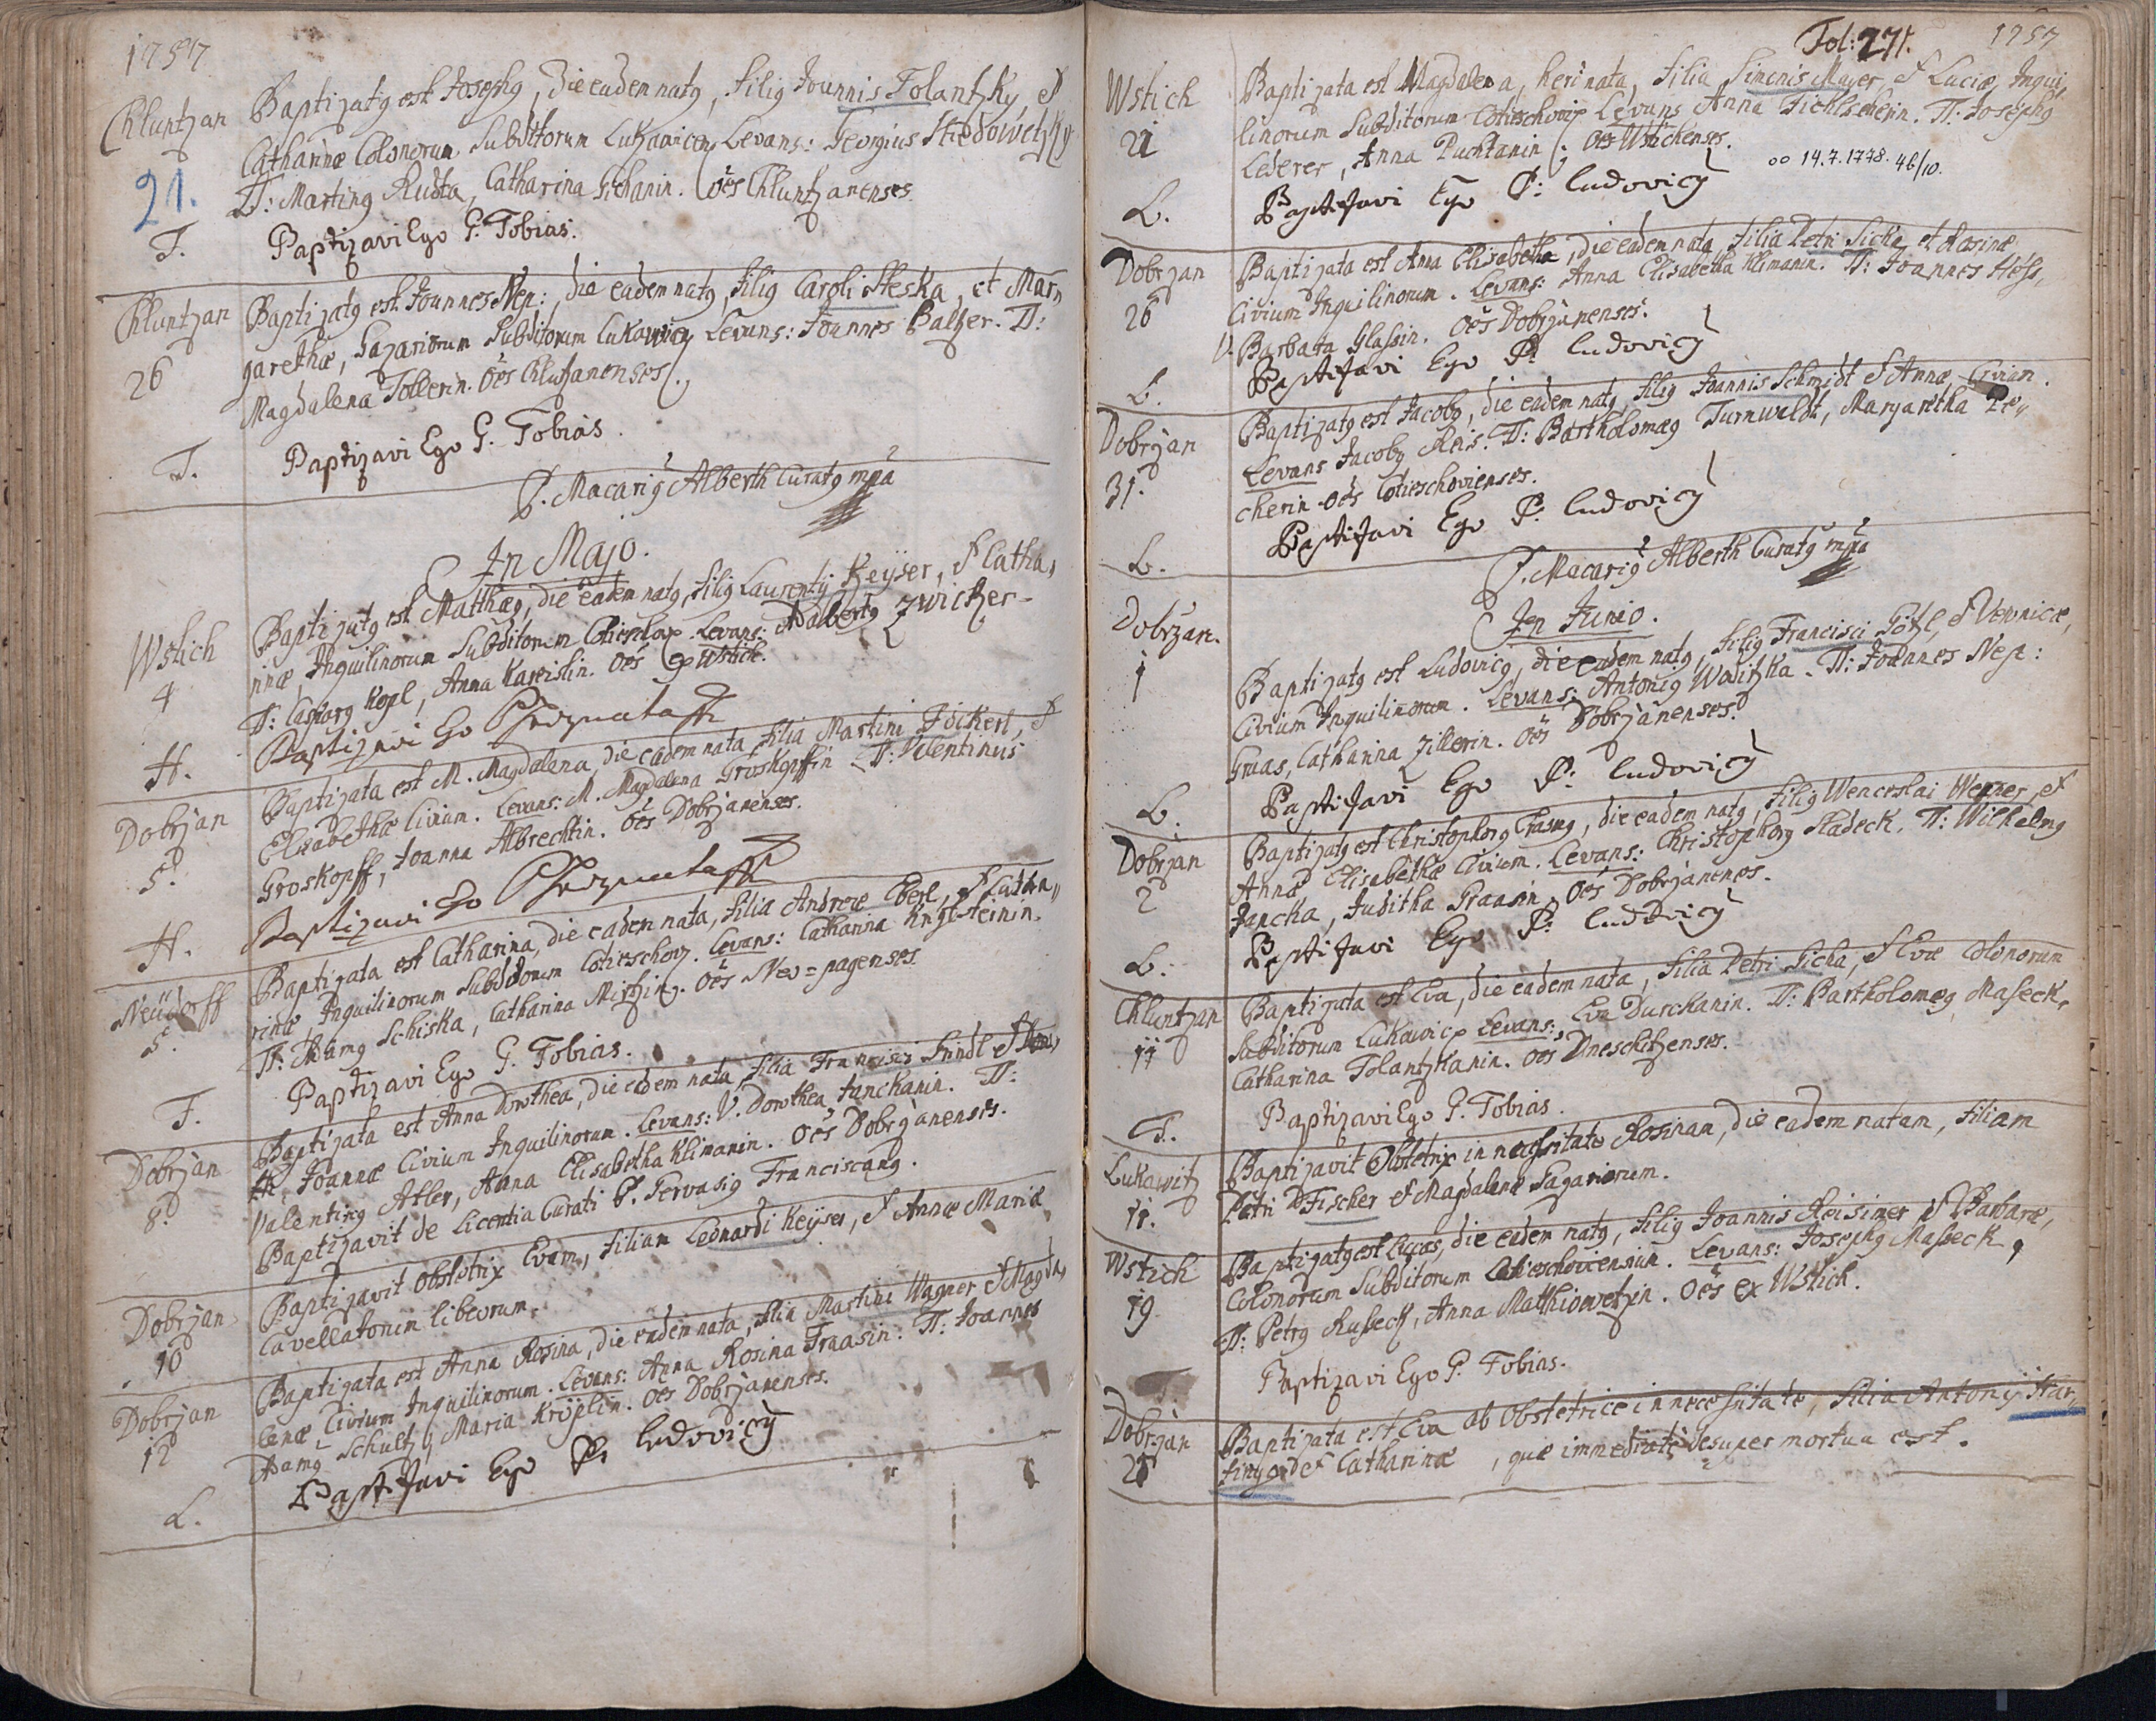 1757
Chluntzan
21.
T.
Baptizatg est Josephg, die eadem natg, filig Joannis Tolantzky, et
Catharinæ Colonorum Subditorum Lukawicen. Levans: Georgius
T: Marting Rusta, Catharina Sichanin. Oēs Chluntzanenses.
Baptizavi Ego G. Tobias.
Chluntzan
26
T.
Baptizatg est Joannes Nep: die eadem natg, filig Caroli Steska, et Mar,,
garethæ, Gazariorum Subditorum Lukawicen Levans: Joannes Balzer. T:
Magdalena Tollerin. Oēs Chlutzanenses.
Baptizavi Ego G. Tobias.
P. Macarig Alberth Curatg mpia
In Majo.
Wstich
4
H.
Baptizatg est Matthæg, die eadem natg, filig Laurentij Keijser, et Catha,,
rinæ, Inquilinorum Subditorum Levans: Adalbertg Zwicker.
T: Casparg Kopl, Anna Kareislin. Oēs ex Wstich.
Baptizavi Ego
Dobrzan
5.
H.
Baptizata est M. Magdalena, die eadem nata, filia Martini Föckerl, et
Elisabethæ Civium. Levans: M. Magdalena Groskopffin T: Valentinus
Groskopff, Joanna Albrechtin. Oēs Dobrzanenses.
Baptizavi Ego
Neüdorff
5.
T.
Baptizata est Catharina, die eadem nata, filia Andreæ Eberl, et Catha,,
rinæ, Inquilinorum Subditorum Cotieschov. Levans: Catharina
T: Adamg Schiska, Catharina Oēs Neo=pagenses.
Baptizavi Ego G. Tobias.
Dobrzan
8.
Baptizata est Anna Dorothea, die eadem nata, filia Francisci Sindl et
Joannæ Civium Inquilinorum. Levans: V. Dorothea Janckanin. T:
Valenting Atler, Anna Elisabetha Klimanin. Oēs Dobrzanenses.
Baptizavit de Licentia Curati P. Gervasig Franciscang.
Dobrzan
10
Baptizavit Obstetrix Evam, filiam Leonardi Keijser, et Annæ Mariæ
Cavellatorum liberorum.
Dobrzan
12
L.
Baptizata est Anna Rosina, die eadem nata, filia Martini Wagner et Magda,,
lenæ, Civium Inquilinorum. Levans: Anna Rosina Fraasin. T: Joannes
Adamg Schultz, Maria Kröplin. Oēs Dobrzanenses.
Baptizavi Ego P: Ludovicg
Fol: 271.
1757
Wstich
21
L.
Baptizata est Magdalena, heri nata, filia Simonis Mayer, et Luciæ, Inqui,,
linorum Subditorum Cotieschov. Levans Anna T: Josephg
Lederer, Anna Puchtanin; Oēs Wstichenses.
oo 14.7.1778. 46/10.
Baptizavi Ego P: Ludovicg
Dobrzan
26
L.
Baptizata est Anna Elisabetha, die eadem nata, filia Petri Sicka et Rosinæ
Civium Inquilinorum. Levans: Anna Elisabetha Klimanin. T: Joannes Höss,
V. Barbara Glassin. Oēs Dobrzanenses.
Baptizavi Ego P: Ludovicg
Dobrzan
31.
L.
Baptizatg est Jacobg, die eadem natg, filig Joannis Schmidt et Annæ Civium.
Levans Jacobg Reis. T: Bartholomæg Turnwaldt, Margaretha Pe,,
cherin. Oēs Cotieschovienses.
Baptizavi Ego P: Ludovicg
P. Macarig Alberth Curatg mpia
In Junio.
Dobrzan.
1
L.
Baptizatg est Ludovicg, die eadem natg, filig Francisci Götzl, et Veronicæ,
Civium Inquilinorum. Levans: Antonig Woditzka. T: Joannes Nep:
Graas, Catharina Zillerin. Oēs Dobrzanenses.
Baptizavi Ego P: Ludovicg
Dobrzan
2
L.
Baptizatg est Christophorg Erasmg, die eadem natg, filig Wenceslai Werner, et
Annæ Elisabethæ Civium. Levans: Christophorg Sladeck. T: Wilhelmg
Jancka, Juditha Graasin. Oēs Dobrzanenses.
Baptizavi Ego P: Ludovicg
Chluntzan
11
T.
Baptizata est Eva, die eadem nata, filia Petri Sicha, et Evæ Colonorum
Subditorum Lukawicen. Levans: Eva Durchanin. T: Bartholomæg Maseck,
Catharina Tolantzkanin. Oēs Dneschitzenses.
Baptizavi Ego G. Tobias.
Lukawitz
11.
Baptizavit Obstetrix in necessitate Rosinam, die eadem natam, filiam
Petri Fischer et Magdalenæ Gazariorum.
Wstich
19
Baptizatg est Lucas, die eadem natg, filig Joannis Reisimer et Barbaræ,
Colonorum Subditorum Cotieschoviensium. Levans: Josephg Maseck,
T: Petrg Russeck, Anna Matthiowetzin. Oēs ex Wstich.
Baptizavi Ego G. Tobias.
Dobrzan
Baptizata est Eva ab Obstetrice in necessitate, filia Antonij Mar,,
et Catharinæ, quæ immediate desuper mortua est.